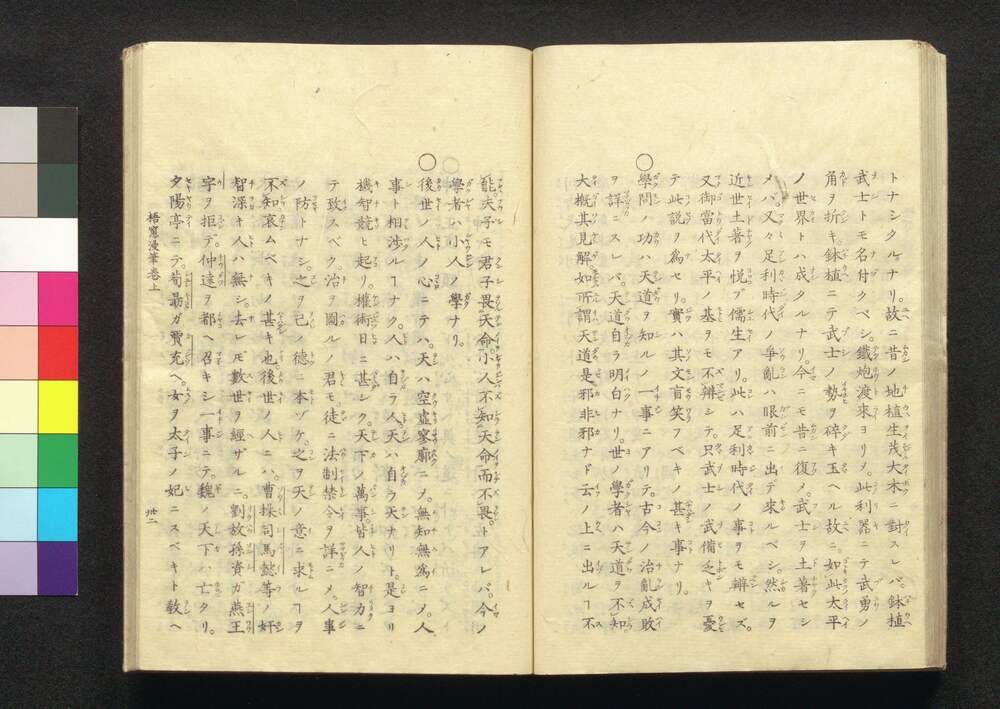 トナシタルナリ。故ニ昔ノ地植生茂大木ニ對スレバ、鉢植
武士トモ名付クベシ。鐵炮渡來ヨリ〆。此利器ニテ武勇ノ
角ヲ折キ鉢植ニテ武士ノ勢ヲ碎キ玉ヘル故ニ。如此太平
ノ世界トハ成タルナリ。今ニモ昔ニ復〆。武士ヲ土著セシ
メバ又々足利時代ノ爭亂ハ眼前ニ出テ來ルベシ然ルヲ
近世土著ヲ悅ブ儒生アリ。此ハ足利時代ノ事ヲモ辨セズ。
又御當代太平ノ基ヲモ不辨シテ。只武士ノ武備乏キヲ憂
テ此說ヲ為セリ。實ハ其文盲笑フベキノ甚キ事ナリ。
○學問ノ功ハ天道ヲ知ルノ一事ニアリテ。古今ノ治亂成敗
ヲ詳ニスレバ。天道自ラ明白ナリ。世ノ學者ハ天道ヲ不知
大概其見解如所謂天道是邪非邪ナド云ノ上ニ出ルヿ不
能。夫子モ君子畏天命。小人不知天命而不畏。トアレバ。今ノ
學者ハ小人ノ學ナリ。
○後世ノ人ノ心ニテハ。天ハ空虛寥廓ニ〆。無知無為ニ〆。人
事ト相渉ルヿナク。人ハ自ラ人天ハ自ラ天ナリト。是ヨリ
機智競ヒ起リ。權術日ニ甚シク。天下ノ萬事皆人ノ智力ニ
テ致スベク。治ヲ圖ルノ君モ徒ニ法制禁令ヲ詳ニ〆。人事
ノ防トナシ。之ヲ己ノ德ニ本ヅケ。之ヲ天ノ意ニ求ルヿヲ
不知哀ムベキノ甚キ也後世ノ人ニハ。曹操司馬懿等ノ奸
智深キ人ハ無シ。去レ𪜈數世ヲ經ザルニ。劉放孫資ガ燕王
宇ヲ拒デ。仲達ヲ都ヘ召キシ一事ニテ。魏ノ天下ハ亡タリ。
夕陽亭ニテ。荀勗ガ賈充ヘ。女ヲ太子ノ妃ニスベキト教ヘ
梧窻漫筆卷上
卅二